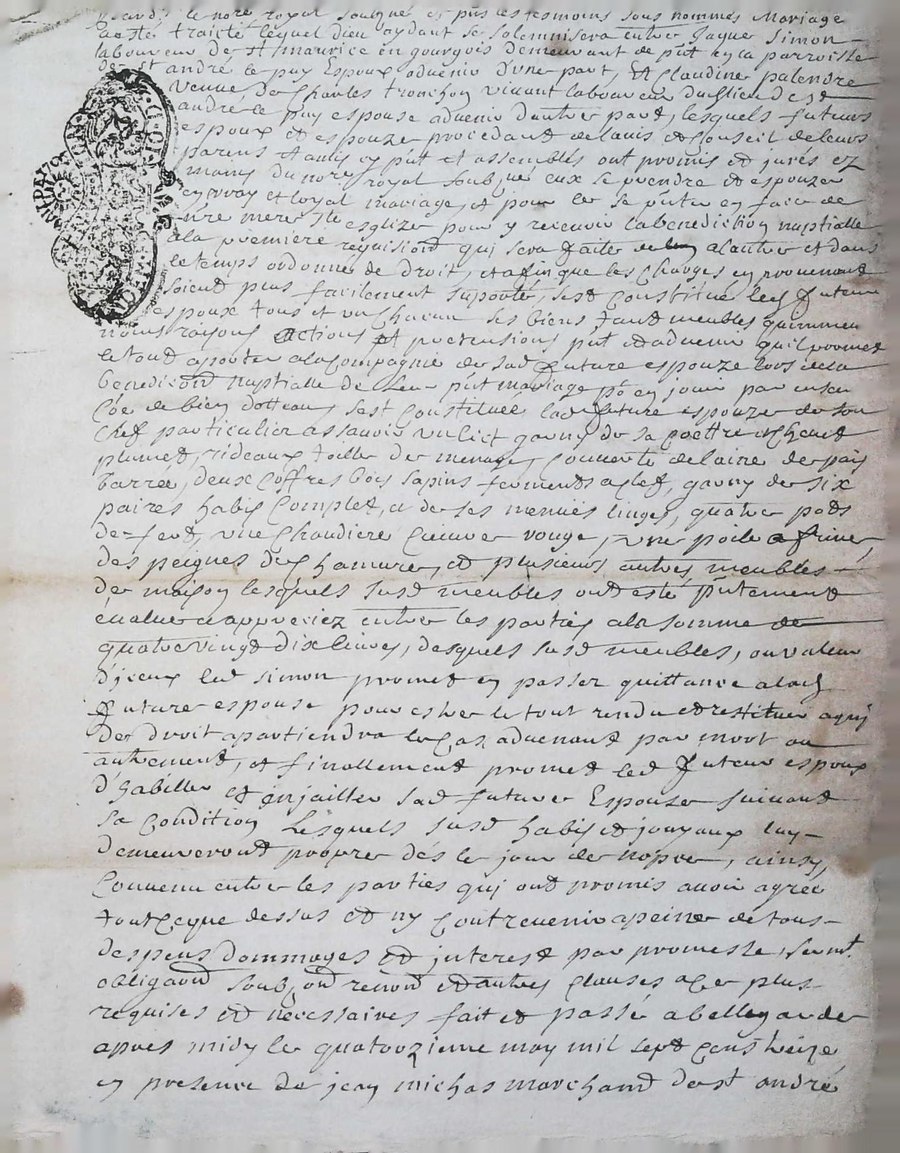 pardt le nore royal soubzne et pnts les tesmoins sous nommés Mariage
a esté traicté lequel dieu aydant se solemnisera entre Jaque Simon
laboureur de St maurice en gourgois demeurant de pnt en la parroisse
de st andré le puy Espoux advenir d'une part, Et Claudine palendre
veuve de Charles tronchon vivant laboureur dud lieu de st
andré le puy espouse advenir d'autre part, lesquels futurs
espoux et espouze procedant de lavis et Conseil de leurs
parens et amis cy pnt et assemblés ont promis et jurés ez
mains du nore royal soubzné eux se prendre et espouzer
en vray et loyal mariage, et pour ce se pnter en face de
nre mere Ste esglize pour y recevoir la benediction nuptialle
a la premiere requisiond qui sera faite de lun a lautre et dans
le temps ordonné de droit, et afin que les Charges en provenand
soient plus facilement suporté, sest Constitué led futeur
espoux tous et un Chacun ses biens tand meubles quimmeu
noms raisons actions et pretensions pnt et advenir quil promet
le tout aporter a la Compagnie de sad future espouze lors de la
benedictiond nuptialle de leur pnt mariage po en jouir par
de bien dotteaux sest Constituée lad future espouze de son
Chef particulier assavoir un lict garny de sa Coettre Chevet
plumet, rideaux toille de menage, Couverte de laine de pais
barrée, deux Coffres bois sapins ferments a clef, garny de six
paires habis Complet, a de ses menues linges, quatre pots
de fert, une Chaudiere Cuivre rouge, une poile a frire,
des peignes de Chamure, et plusieurs autres meubles
de maison lesquels susd meubles ont esté pntement
évalué a appreciez entre les parties a la somme de
quatre vingt dix livres, desquels susd meubles, ou valeur
d'jceux led Simon promet en passer quittance a lad
future espouse pour estre le tout rendu et restituer a qui
de droit apartiendra le Cas advenant par mort ou
autrement, et finallement promet led futeur espoux
d'habiller et enjailler sad future Espouze suivand
sa Condition Lesquels susd habis et joyaux luy
demeureront propre dés le jour de nopce, ainsy
Convenu entre les parties qui ont promis avoir agreé
tout Ceque dessus et ny Contrevenir a peine de tous
despens dommages et interest par promesse, sermt.
obligaond soubzond renond et autres Clauses a Ce plus
requises et necessaires fait et passé a bellegarde
apres midy le quatorzienne may mil sept Cens treize
en presence de jean michas marchand de st andré